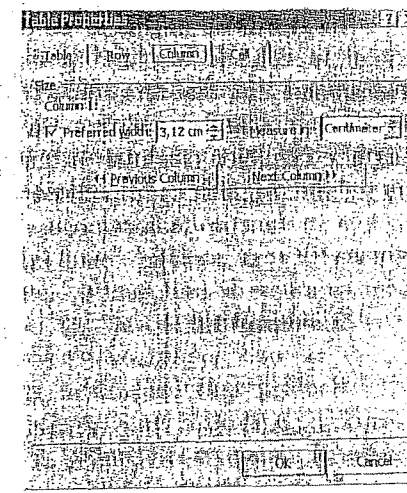 Table Properties ?
Table Row Column Cell
Size
Column 1:
Preferred width: 3,12 cm Measure in: Centimeter
Previous Column Next Column
Ok Cancel